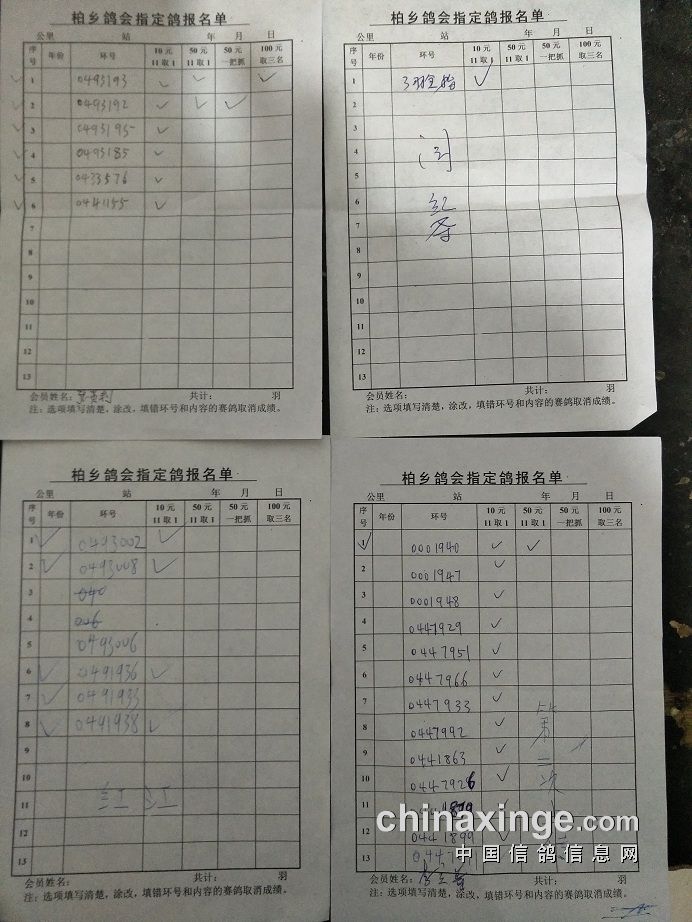 柏乡鸽会指定鸽报名单
公里 站 年 月 日
序号 年份 环号 10元11取1 50元11取1 50元一把抓 100元取三名
1 0493193 ✓ ✓ ✓
2 0493192 ✓ ✓ ✓
3 0493195 ✓
4 0493185 ✓
5 0433576 ✓
6 0441155 ✓
7
8
9
10
11
12
13
会员姓名: 共计: 羽
注:选项填写清楚,涂改,填错环号和内容的赛鸽取消成绩。
柏乡鸽会指定鸽报名单
公里 站 年 月 日
序号 年份 环号 10元11取1 50元11取1 50元一把抓 100元取三名
1 ✓
2
3
4
5
6
7
8
9
10
11
12
13
会员姓名: 共计: 羽
注:选项填写清楚,涂改,填错环号和内容的赛鸽取消成绩。
柏乡鸽会指定鸽报名单
公里 站 年 月 日
序号 年份 环号 10元11取1 50元11取1 50元一把抓 100元取三名
1 ✓ 0493002 ✓
2 ✓ 0493008 ✓
3 040
4 006
5 0493006
6 ✓ 0491936 ✓
7 ✓ 0491933
8 ✓ 0441938 ✓
9
10
11
12
13
会员姓名: 共计: 羽
注:选项填写清楚,涂改,填错环号和内容的赛鸽取消成绩。
柏乡鸽会指定鸽报名单
公里 站 年 月 日
序号 年份 环号 10元11取1 50元11取1 50元一把抓 100元取三名
1 ✓ 0001940 ✓ ✓
2 0001947 ✓
3 0001948 ✓
4 0447929 ✓
5 0447951 ✓
6 0447966 ✓
7 0447933 ✓
8 0447992 ✓ 第
9 0441863 ✓ 二
10 0447926 ✓ 次
11 1899 ✓
12 0441899 ✓
13 0447
会员姓名: 共计: 羽
注:选项填写清楚,涂改,填错环号和内容的赛鸽取消成绩。
chinaxinge.com
中国信鸽信息网